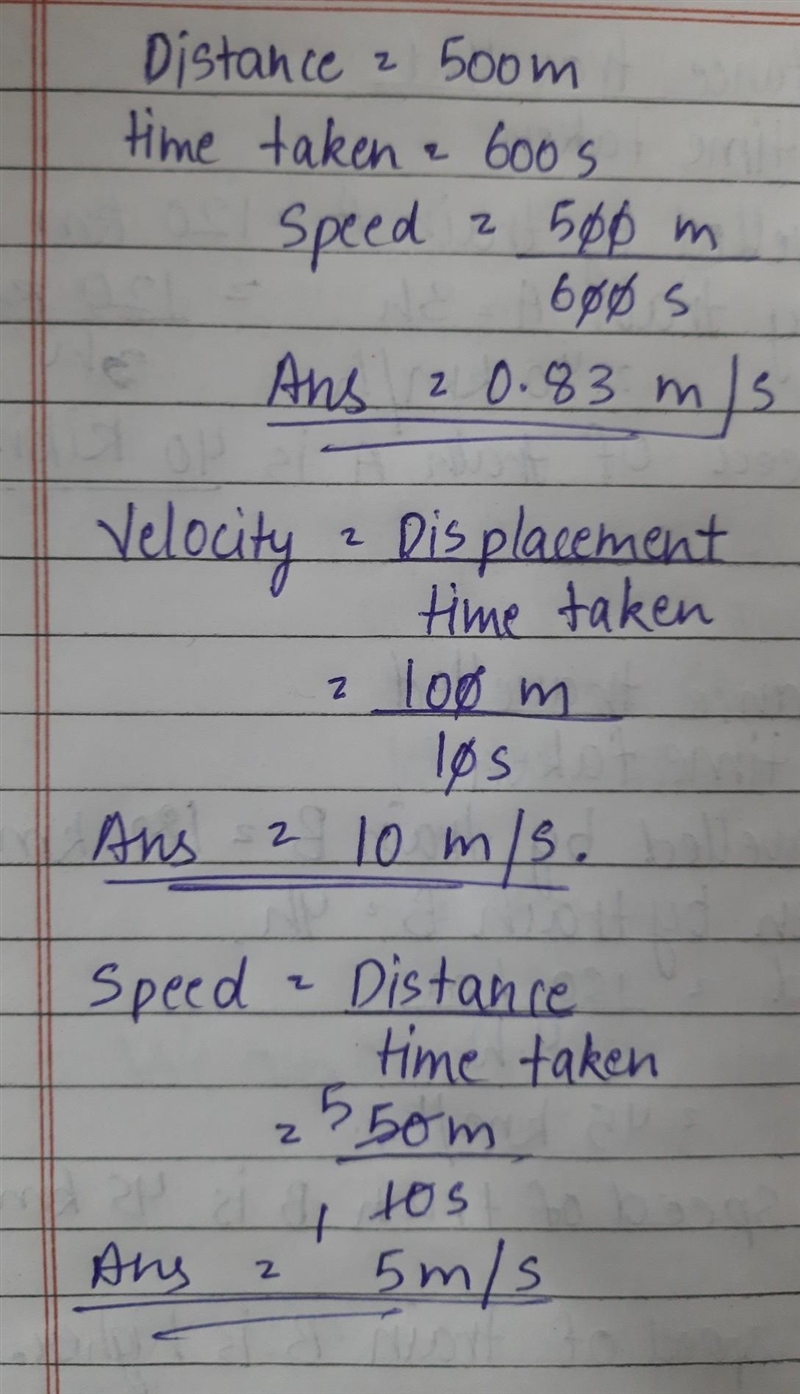 Distance = 500m
time taken = 600s
Speed = 500 m
600 s
Ans = 0.83 m/s
Velocity = Displacement
time taken
= 100 m
10s
Ans = 10 m/s.
Speed = Distance
time taken
= 5 50m
1 10s
Ans = 5m/s